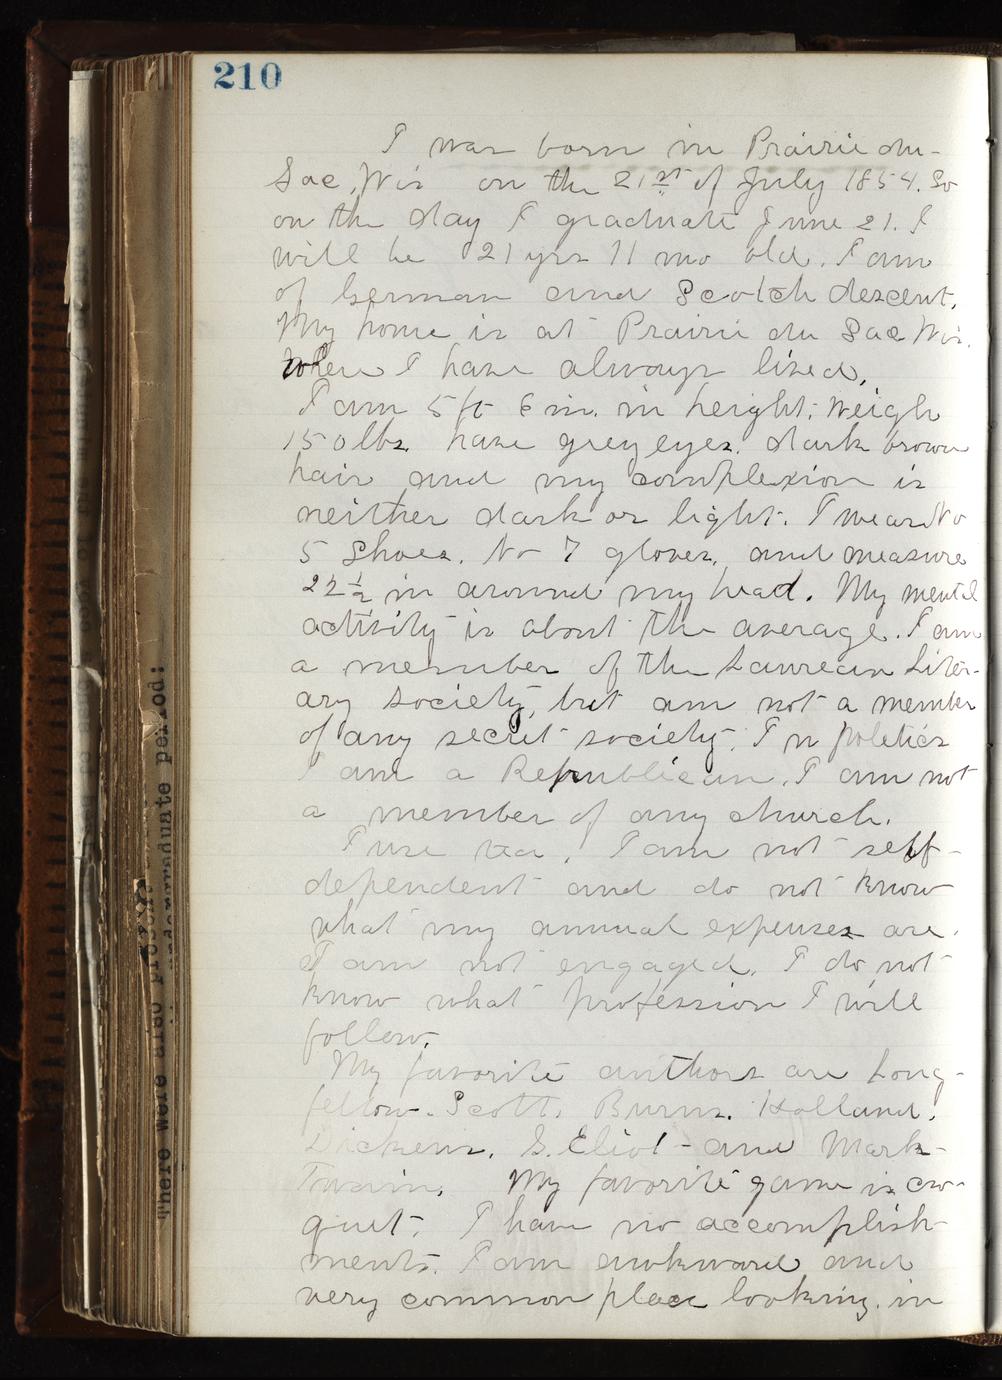 210
I was born in Prairie du-
Sac, Wis on the 21st of July 1854. So
on the day I graduate June 21. I
will be 21 yrs 11 mo old. I am
of German and Scotch descent.
My home is at Prairie du Sac Wis.
where I have always lived.
I am 5 ft 6 in. in height. Weigh
150 lbs. have grey eyes. dark brown
hair and my complexion is
neither dark or light. I wear No
5 Shoes. No 7 gloves, and measure
22 1/2 in around my head. My mental
activity is about the average. I am
a member of the Laurean Liter-
ary society, but am not a member
of any secret society. In politics
I am a Republican. I am not
a member of any church.
I use tea. I am not self-
dependent and do not know
what my annual expenses are.
I am not engaged. I do not
know what profession I will
follow.
My favorite authors are Long-
fellow. Scott. Burns. Holland.
Dickens. G. Eliot - and Mark-
Twain. My favorite game is cro-
quet. I have no accomplish-
ments. I am awkward and
very common place looking, in
There were also
undergraduate period: